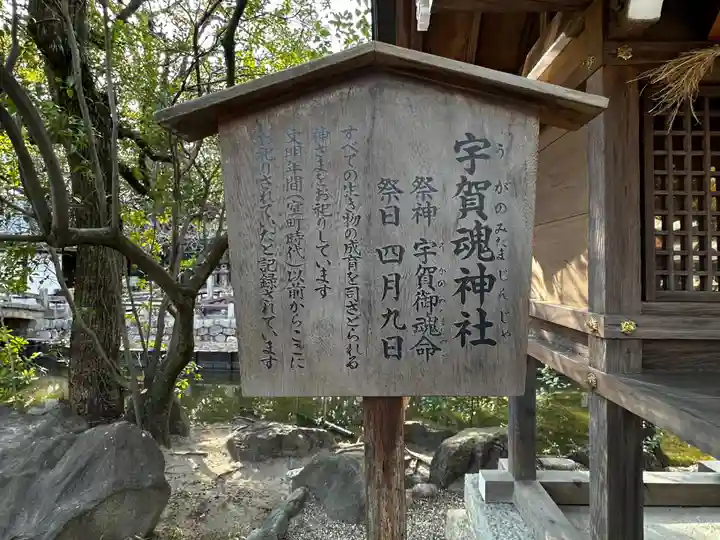 宇賀魂神社
うがのみたまじんじゃ
祭神 宇賀御魂命
祭日 四月九日
すべての生き物の成育を司さどられる
神さまをお祀りしています
文明年間（室町時代）以前からここに
お祀りされていたと記録されています